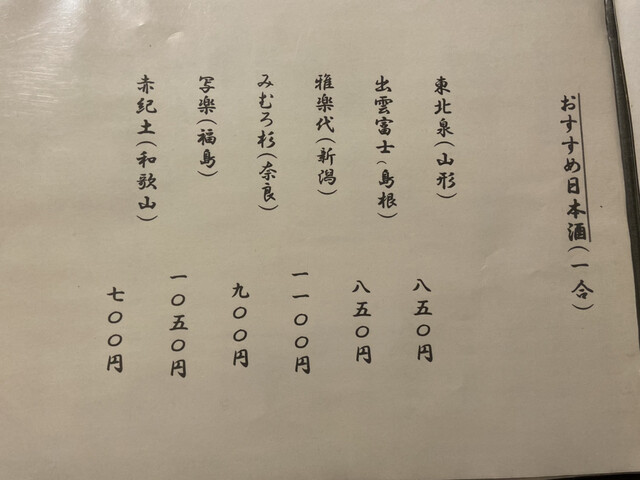 おすすめ日本酒(一合)
東北泉(山形) 八五〇円
出雲富士(島根) 八五〇円
雅楽代(新潟) 一一〇〇円
みむろ杉(奈良) 九〇〇円
写楽(福島) 一〇五〇円
赤紀土(和歌山) 七〇〇円